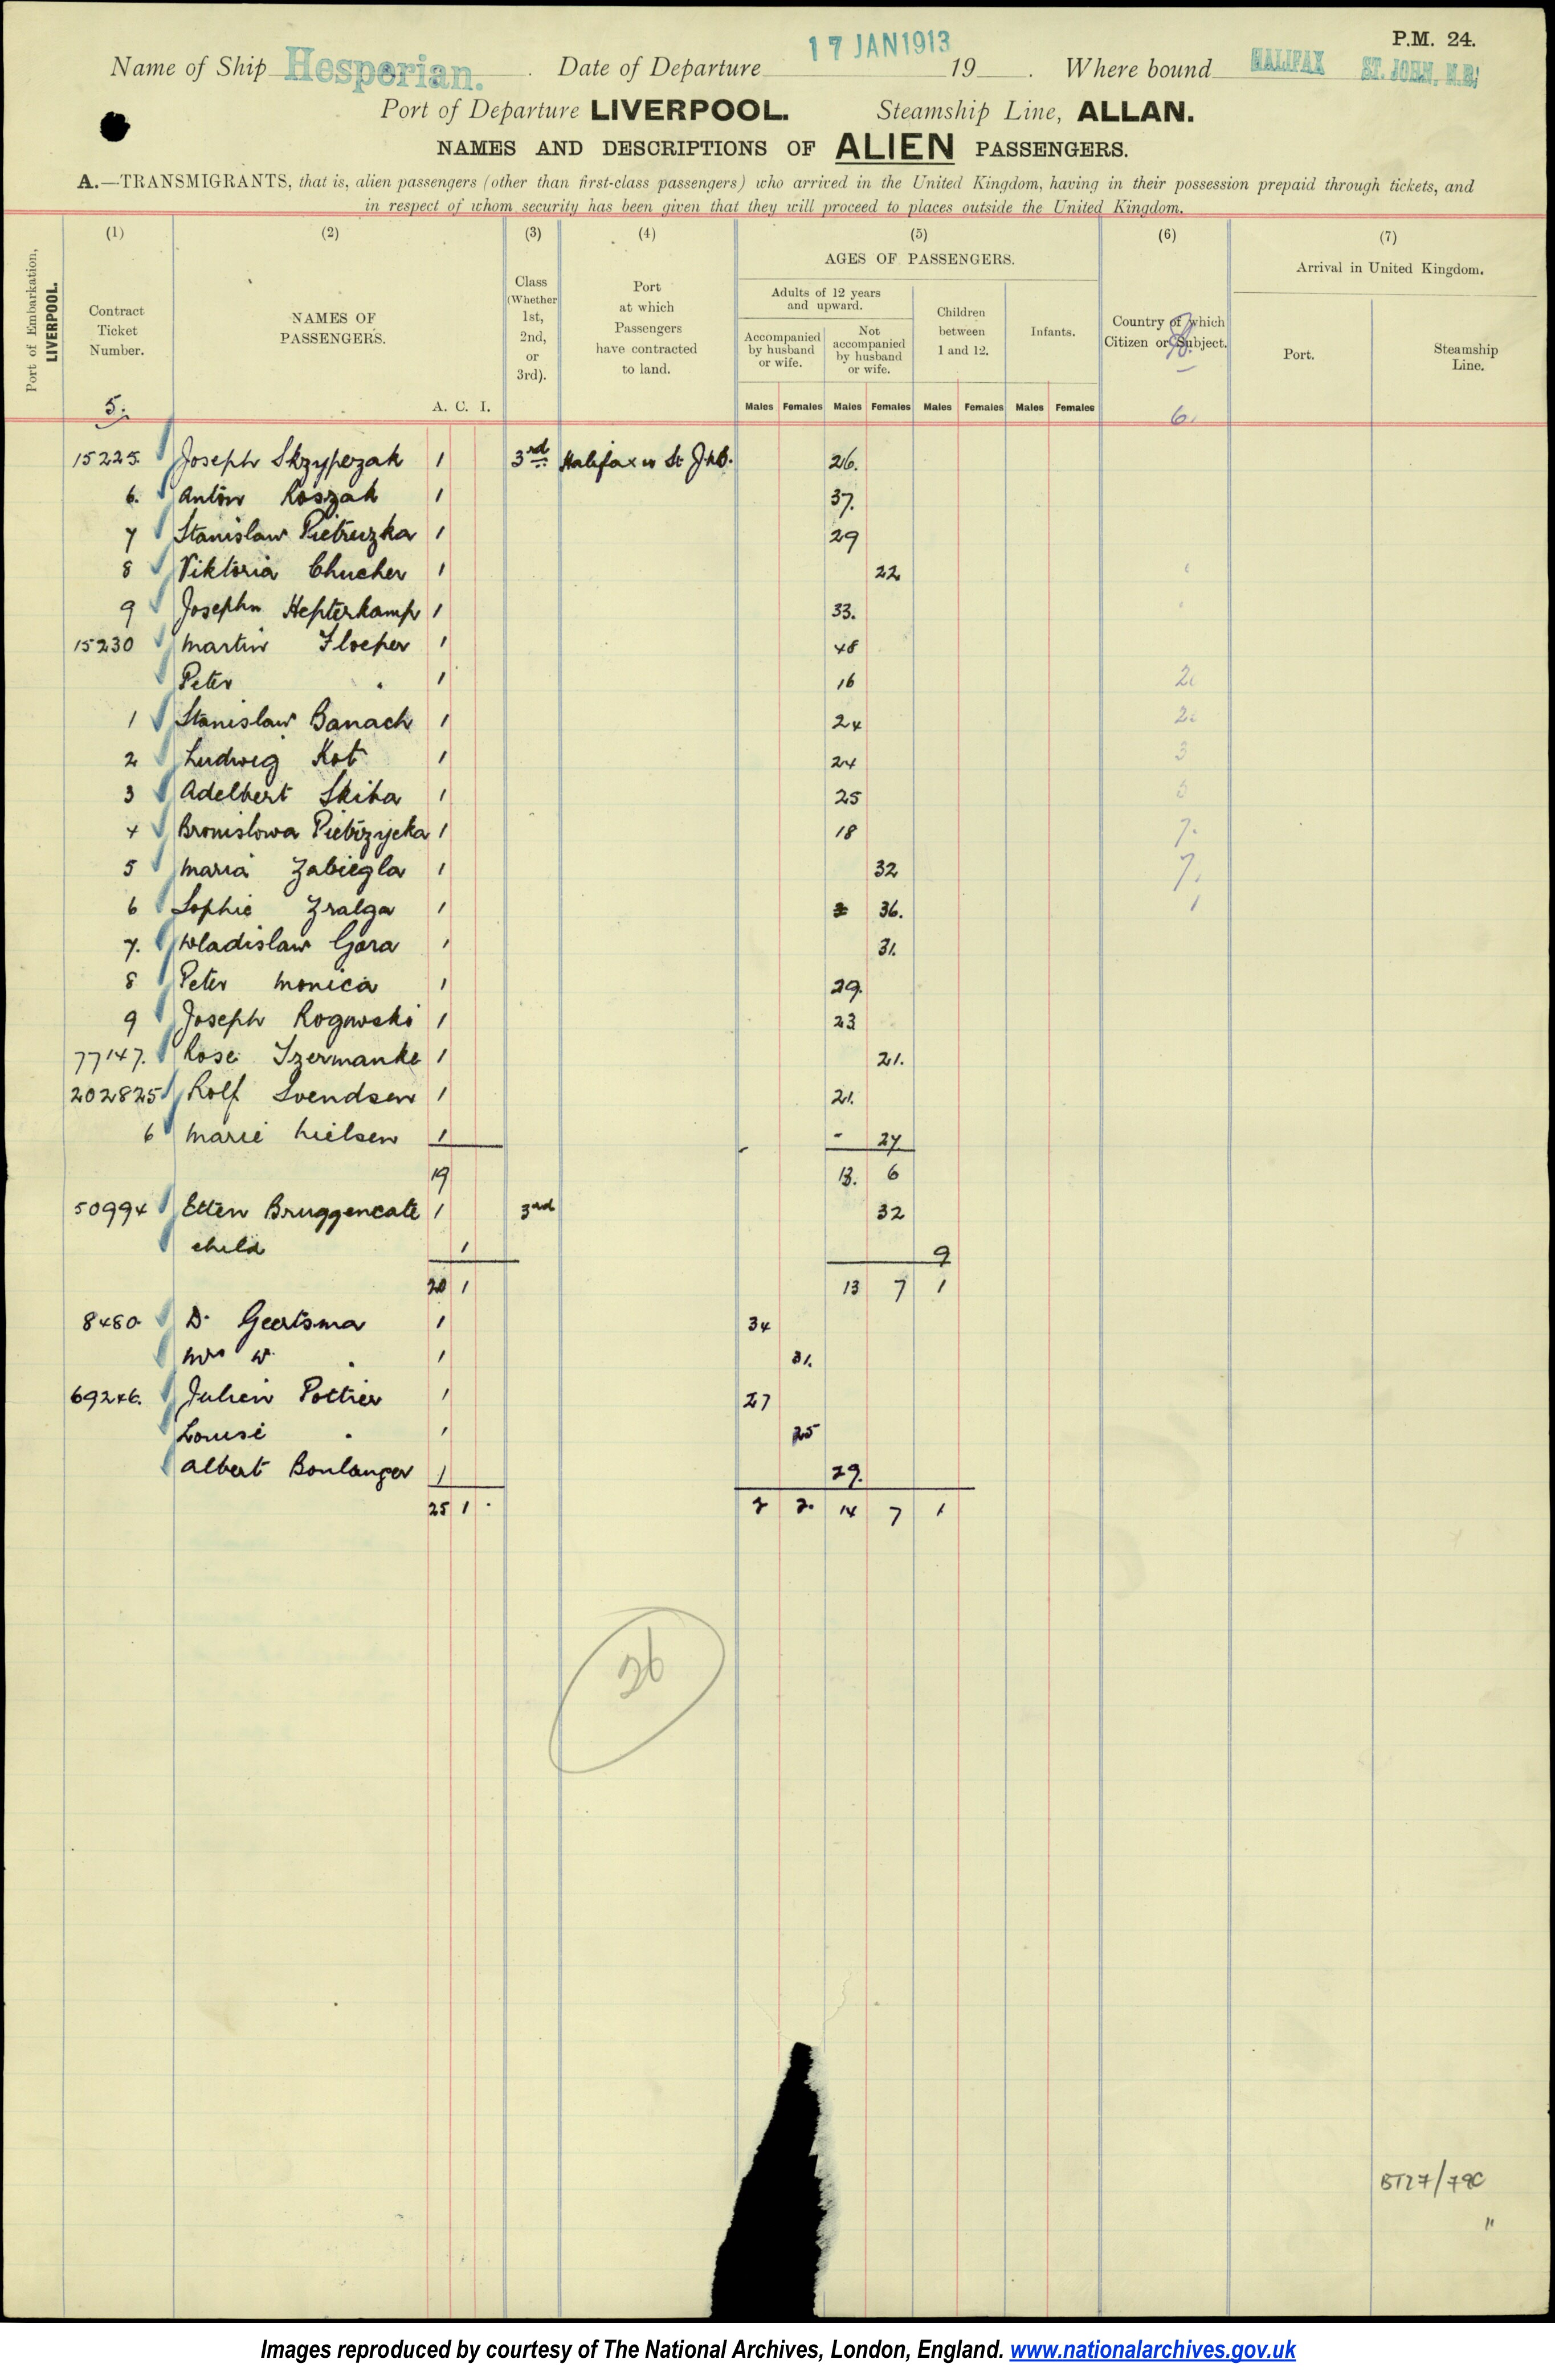 P.M. 24.
17 JAN 1913
Name of Ship Hesperian. Date of Departure 19 . Where bound HALIFAX ST. JOHN, N.B.
Port of Departure LIVERPOOL. Steamship Line, ALLAN.
NAMES AND DESCRIPTIONS OF ALIEN PASSENGERS.
A.—TRANSMIGRANTS, that is, alien passengers (other than first-class passengers) who arrived in the United Kingdom, having in their possession prepaid through tickets, and
in respect of whom security has been given that they will proceed to places outside the United Kingdom.
Port of Embarkation,
LIVERPOOL.
(1)
Contract
Ticket
Number.
5.
(2)
NAMES OF
PASSENGERS.
A. C. I.
(3)
Class
(Whether
1st,
2nd,
or
3rd).
(4)
Port
at which
Passengers
have contracted
to land.
(5)
AGES OF PASSENGERS.
Adults of 12 years
and upward.
Accompanied
by husband
or wife.
Not
accompanied
by husband
or wife.
Children
between
1 and 12.
Infants.
Males Females Males Females Males Females Males Females
(6)
Country of which
Citizen or Subject.
6.
(7)
Arrival in United Kingdom.
Port.
Steamship
Line.
15225. Joseph Skzypczak 1 3rd Halifax or St J. N.B. 26.
6. Anton Koszak 1 37.
7 Stanislaw Pietruzka 1 29
8 Viktoria Chucher 1 22
9 Josephn Hepterkamp 1 33.
15230 Martin Floeper 1 48
Peter " 1 16 2
1 Stanislaw Banach 1 24 2
2 Ludwig Kot 1 24 3
3 Adelbert Skiba 1 25 3
4 Bronislowa Pietrzycka 1 18 7.
5 Maria Zabiegla 1 32 7.
6 Sophie Zralga 1 36. 1
7. Wladislaw Gora 1 31.
8 Peter Monica 1 29.
9 Joseph Rogowski 1 23
77147. Rose Izermanke 1 21.
202825 Rolf Svendsen 1 21.
6 Marie Nielsen 1 - 27
19 13. 6
50994 Etten Bruggencate 1 3rd 32
child 1 9
20 1 13 7 1
8480 D. Geertsma 1 34
Mrs W. " 1 31.
69246. Julien Pottier 1 27
Louise " 1 25
Albert Boulanger 1 29.
25 1 . 2 2. 14 7 1
26
BT27/79C
"
Images reproduced by courtesy of The National Archives, London, England. www.nationalarchives.gov.uk